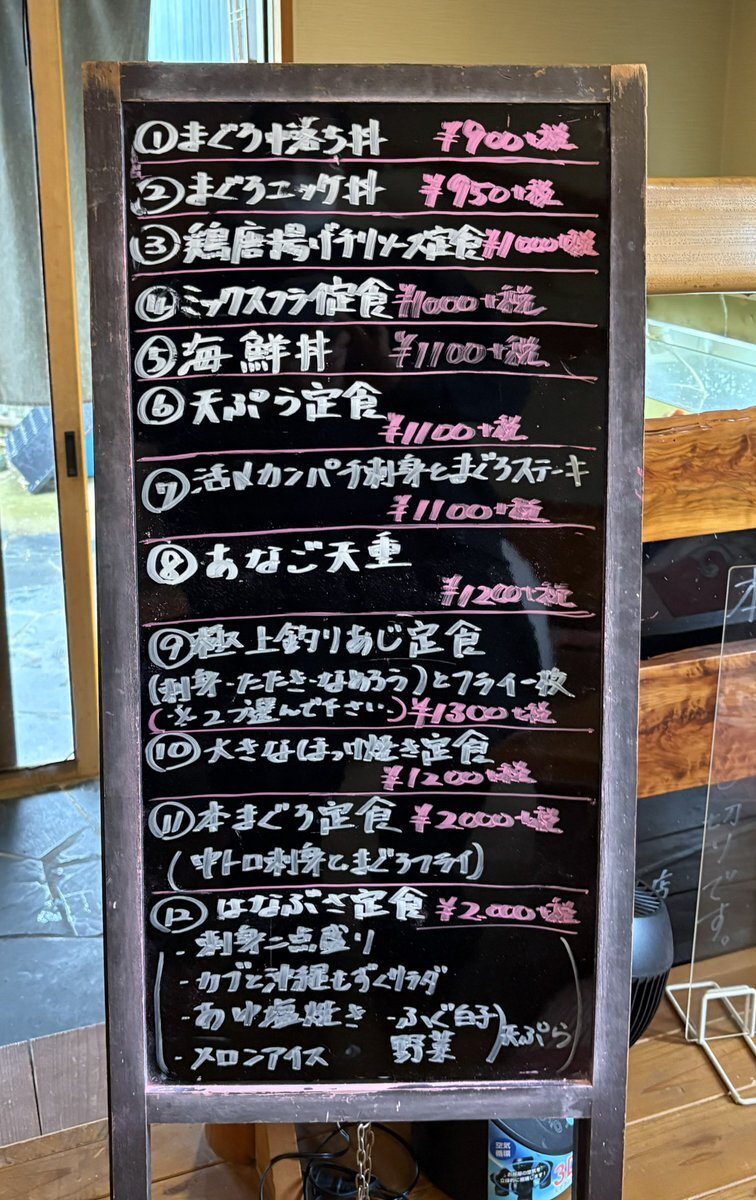 ①まぐろ中落ち丼 ¥900+税
②まぐろユッケ丼 ¥950+税
③鶏唐揚げチリソース定食 ¥1000+税
④ミックスフライ定食 ¥1000+税
⑤海鮮丼 ¥1100+税
⑥天ぷら定食
¥1100+税
⑦活〆カンパチ刺身とまぐろステーキ
¥1100+税
⑧あなご天重
¥1200+税
⑨極上釣りあじ定食
(刺身・たたき・なめろう)とフライ一枚
(※2つ選んで下さい) ¥1300+税
⑩大きなほっけ焼き定食
¥1200+税
⑪本まぐろ定食 ¥2000+税
(中トロ刺身とまぐろフライ)
⑫はなぶさ定食 ¥2,000+税
・刺身二点盛り
・カブと沖縄もずくサラダ
・あゆ塩焼き ・ふぐ白子
・メロンアイス 野菜)天ぷら
切りです。
店
空気
循環